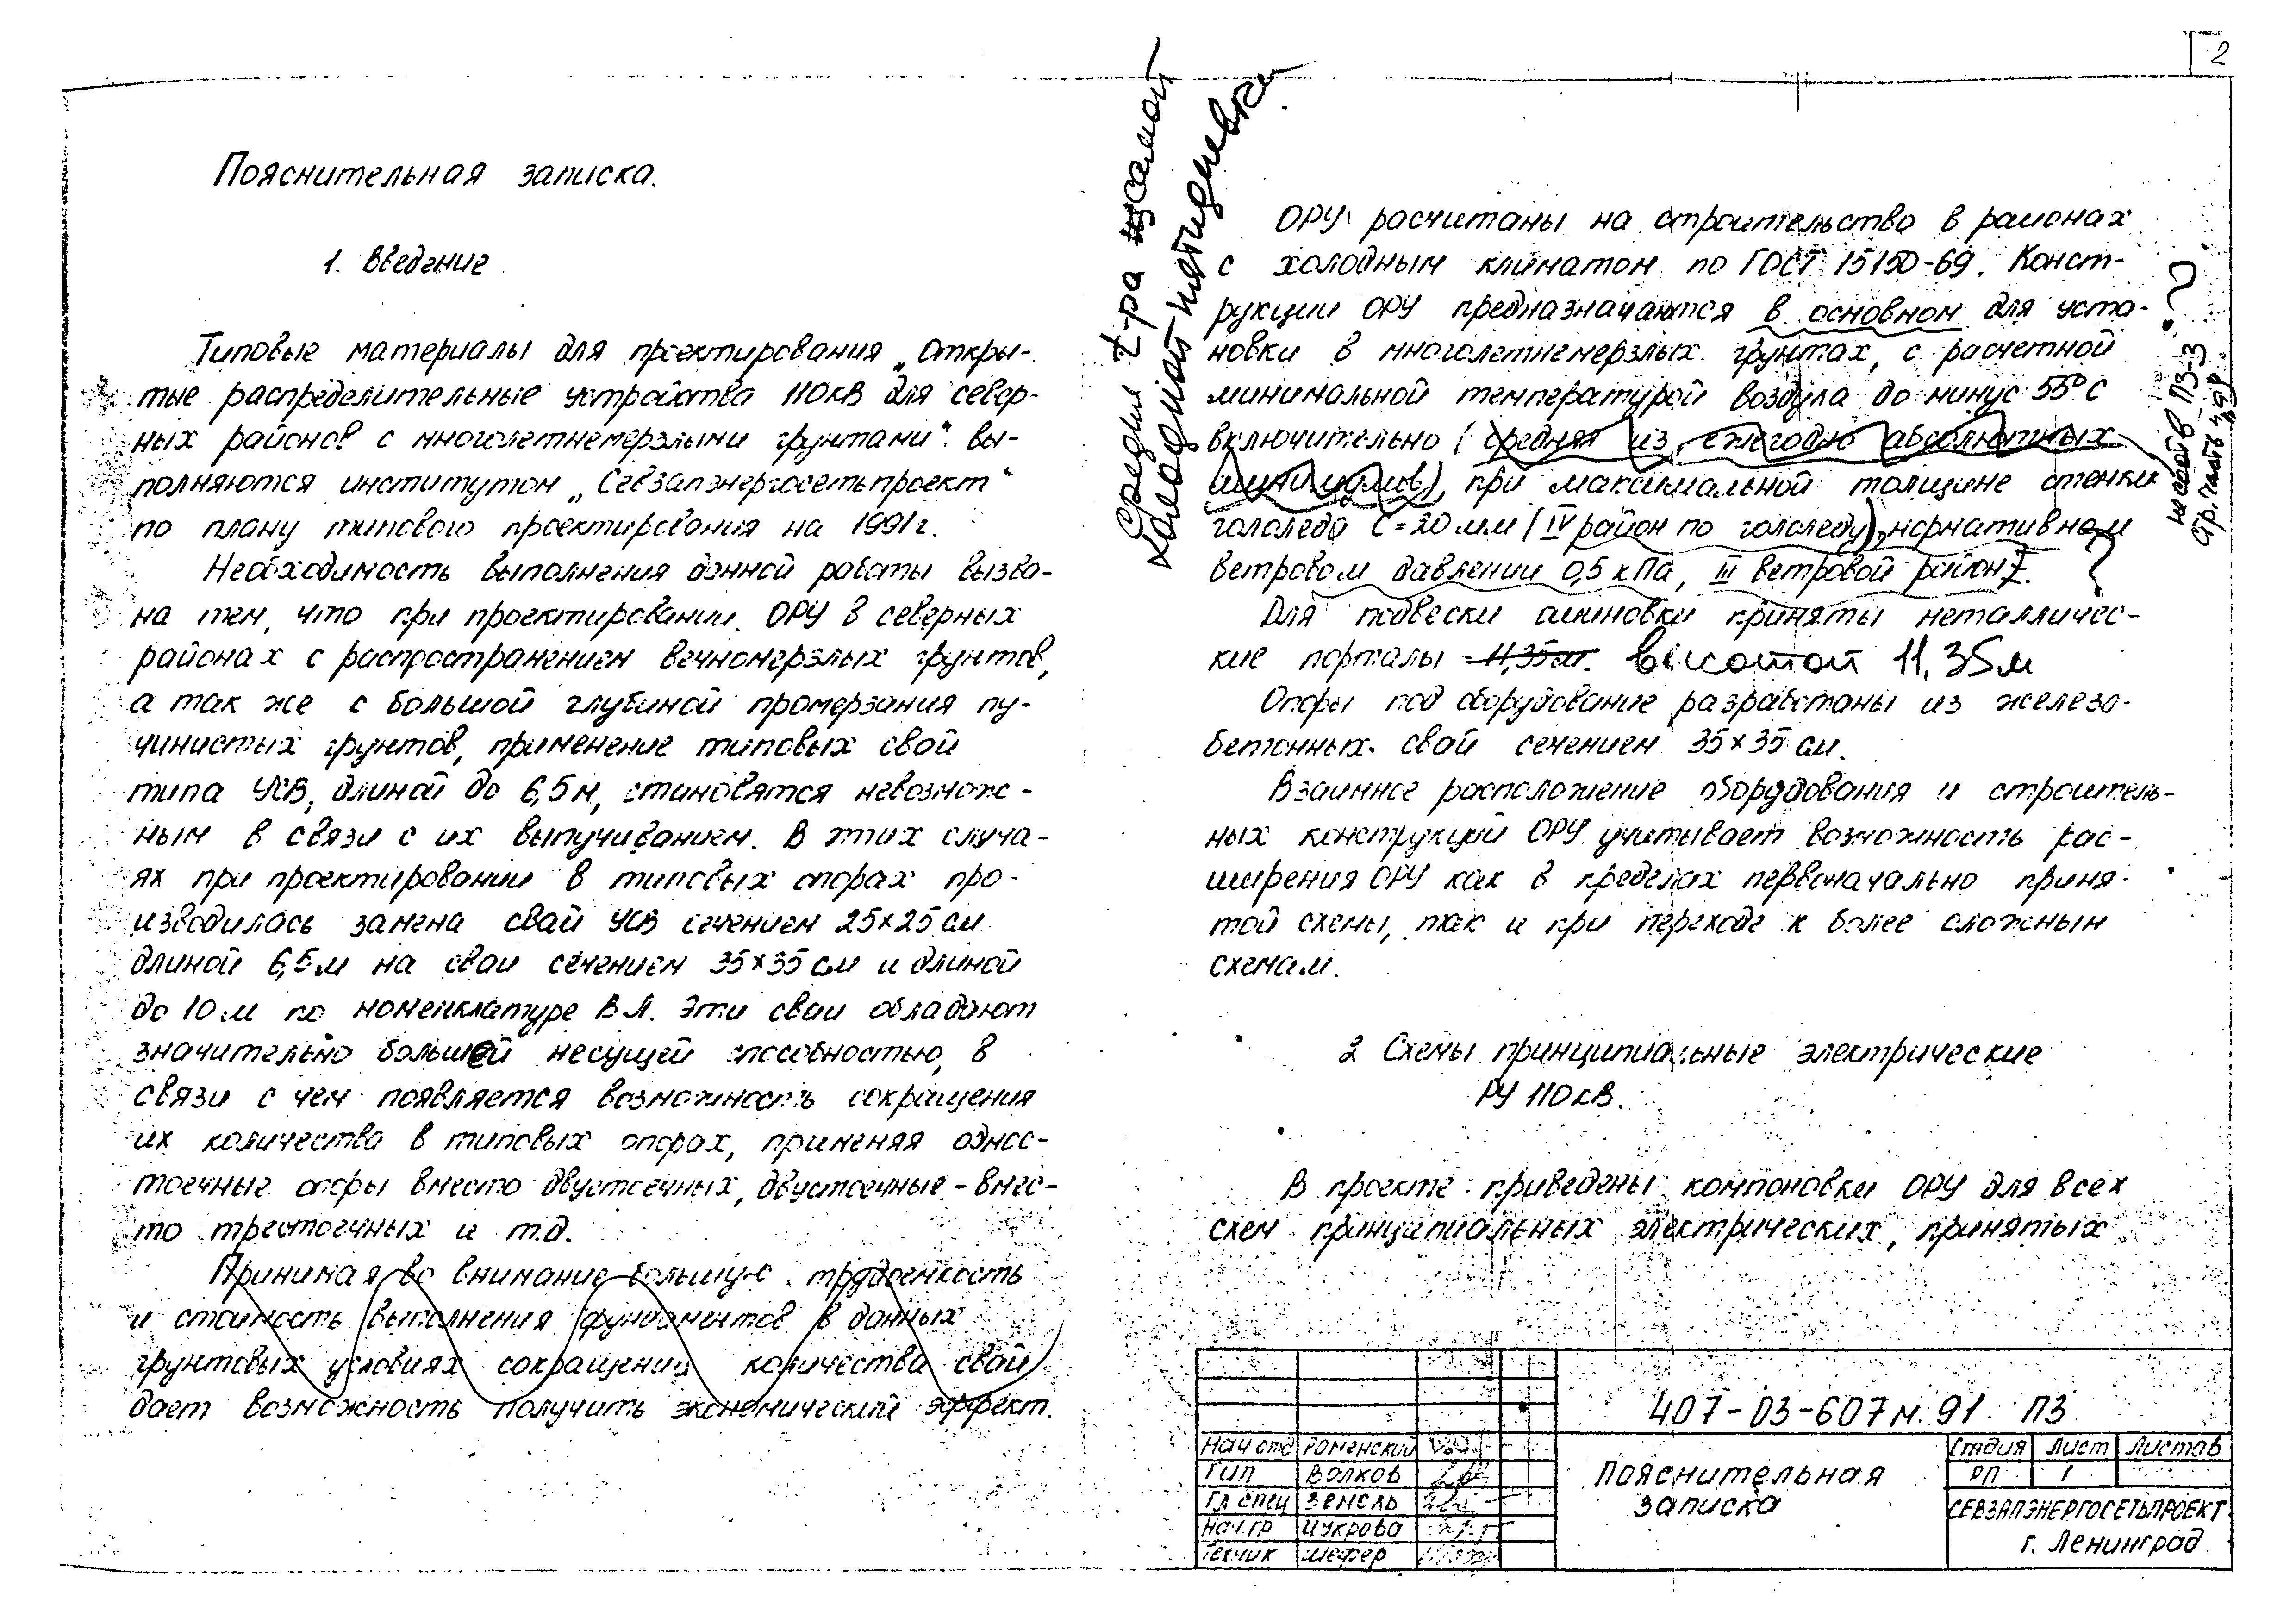 2
Пояснительная записка.
1. Введение
Типовые материалы для проектирования „Откры-
тые распределительные устройства 110кВ для север-
ных районов с многолетнемерзлыми грунтами“ вы-
полняются институтом „Севзапэнергосетьпроект“
по плану типового проектирования на 1991г.
Необходимость выполнения данной работы вызва-
на тем, что при проектировании ОРУ в северных
районах с распространением вечномерзлых грунтов,
а так же с большой глубиной промерзания пу-
чинистых грунтов, применение типовых свай
типа УСВ, длиной до 6,5м, становятся невозмож-
ным в связи с их выпучиванием. В этих случа-
ях при проектировании в типовых опорах про-
изводилась замена свай УСВ сечением 25×25см
длиной 6,5м на сваи сечением 35×35см и длиной
до 10м по номенклатуре ВЛ. Эти сваи обладают
значительно большей несущей способностью, в
связи с чем появляется возможность сокращения
их количества в типовых опорах, применяя однос-
тоечные опоры вместо двустоечных, двустоечные - вмес-
то трестоечных и т.д.
Принимая во внимание большую трудоемкость
и стоимость выполнения фундаментов в данных
грунтовых условиях сокращении количества свай
дает возможность получить экономический эффект.
Средняя t-ра самой
холодной пятидневки
ОРУ расчитаны на строительство в районах
с холодным климатом по ГОСТ 15150-69. Конст-
рукции ОРУ предназначаются в основном для уста-
новки в многолетнемерзлых грунтах, с расчетной
минимальной температурой воздуха до минус 55°С
включительно (средняя из ежегодно абсолютных
минимумов), при максимальной толщине стенки
гололеда С=20мм (IV район по гололеду), нормативном
ветровом давлении 0,5 кПа, III ветровой район.
?
Для подвески ошиновки приняты металличес-
кие порталы 11,35м. высотой 11,35м
Опоры под оборудование разработаны из железо-
бетонных свай сечением 35×35см.
Взаимное расположение оборудования и строитель-
ных конструкций ОРУ учитывает возможность рас-
ширения ОРУ как в пределах первоначально приня-
той схемы, так и при переходе к более сложным
схемам.
?
ПЗ-3
2 Схемы принципиальные электрические
РУ 110кВ.
В проекте приведены компоновки ОРУ для всех
схем принципиальных электрических, принятых
407-03-607м.91 ПЗ
Нач отд Роменский
Гип Волков
Гл спец Земель
Нач.гр Цукрова
Техник Шефер
Пояснительная
записка
Стадия Лист Листов
РП 1
СЕВЗАПЭНЕРГОСЕТЬПРОЕКТ
г. Ленинград